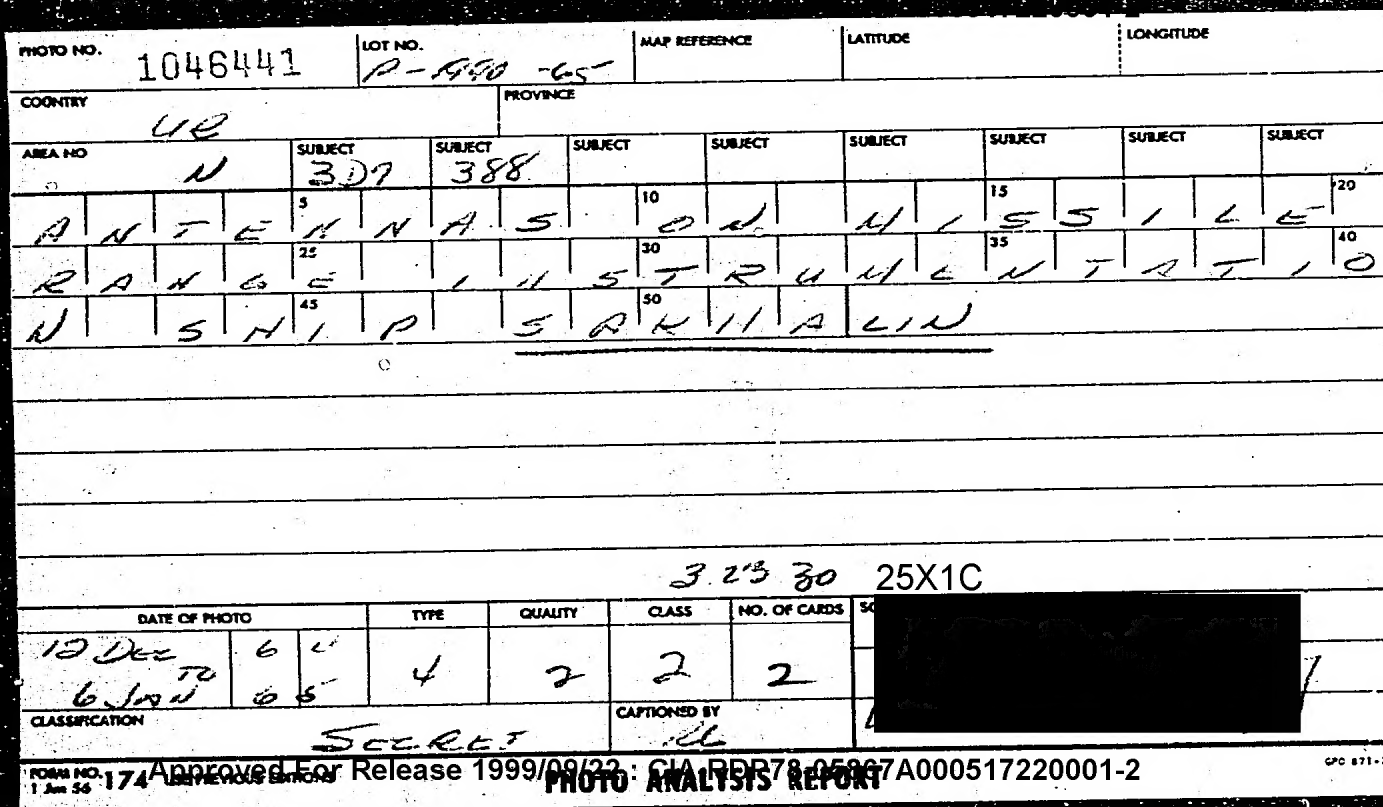 PHOTO NO. 1046441 LOT NO. MAP REFERENCE LATITUDE LONGITUDE
COUNTRY UR PROVINCE
AREA NO N SUBJECT 3D7 SUBJECT 388 SUBJECT SUBJECT SUBJECT SUBJECT SUBJECT SUBJECT
5 10 15 20
ANTENNAS ON MISSILE
25 30 35 40
RANGE INSTRUMENTATIO
45 50
N SHIP SAKHALIN
3 23 30 25X1C
DATE OF PHOTO TYPE QUALITY CLASS NO. OF CARDS
12 DEC 64
TO 4 2 2 2
6 JAN 65
CLASSIFICATION SECRET CAPTIONED BY
FORM NO. 174 USE PREVIOUS EDITIONS PHOTO ANALYSIS REPORT
1 Jun 56
Approved For Release 1999/09/22 : CIA-RDP78-05867A000517220001-2